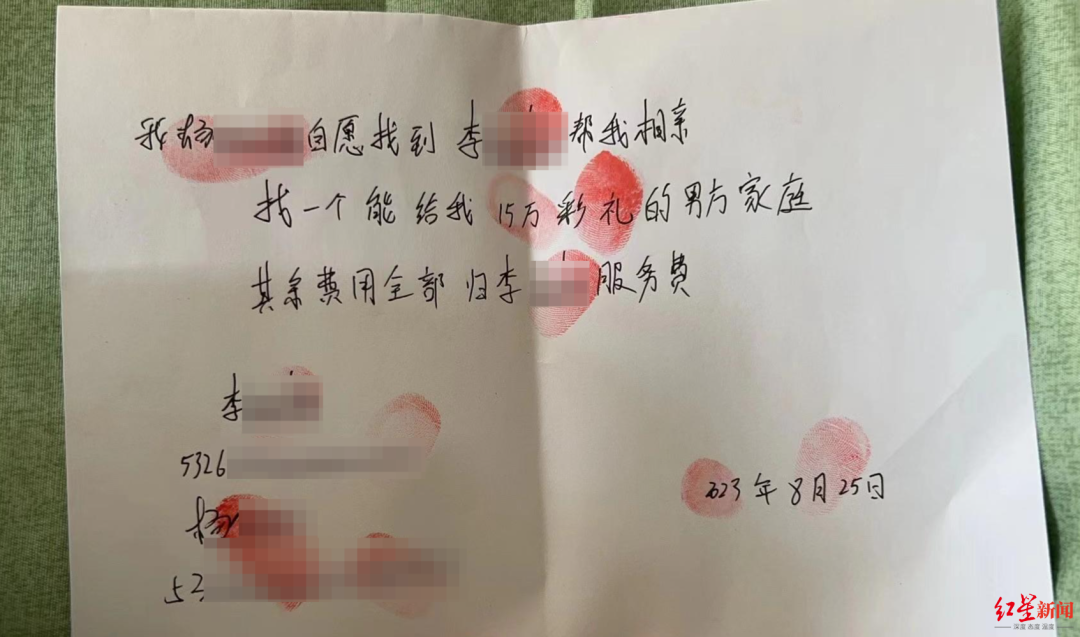 我杨 自愿找到 李 帮我相亲
找一个能给我15万彩礼的男方家庭
其余费用全部归李 服务费
李
5326
杨
53
2023年8月25日
红星新闻
深度 态度 温度